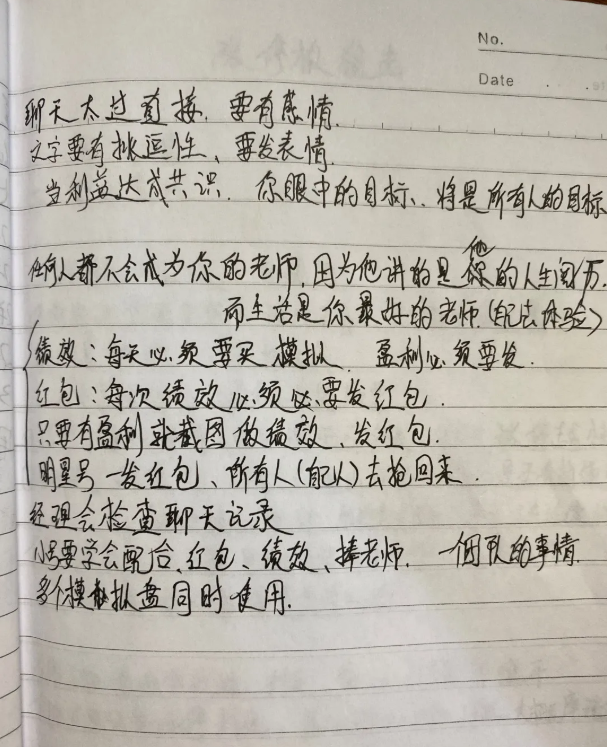 No.
Date
聊天太过直接. 要有感情.
文字要有挑逗性、要发表情
当利益达成共识. 你眼中的目标、将是所有人的目标
任何人都不会成为你的老师,因为他讲的是他的人生阅历.
而生活是你最好的老师(自己去体验)
绩效:每天必须要买模拟 盈利必须要发.
红包:每次绩效必须必要发红包.
只要有盈利就截图做绩效、发红包.
明星号一发红包、所有人(自己人)去抢回来.
经理会检查聊天记录
小号要学会配合、红包、绩效、捧老师. 一个团队的事情.
多个模拟盘同时使用.